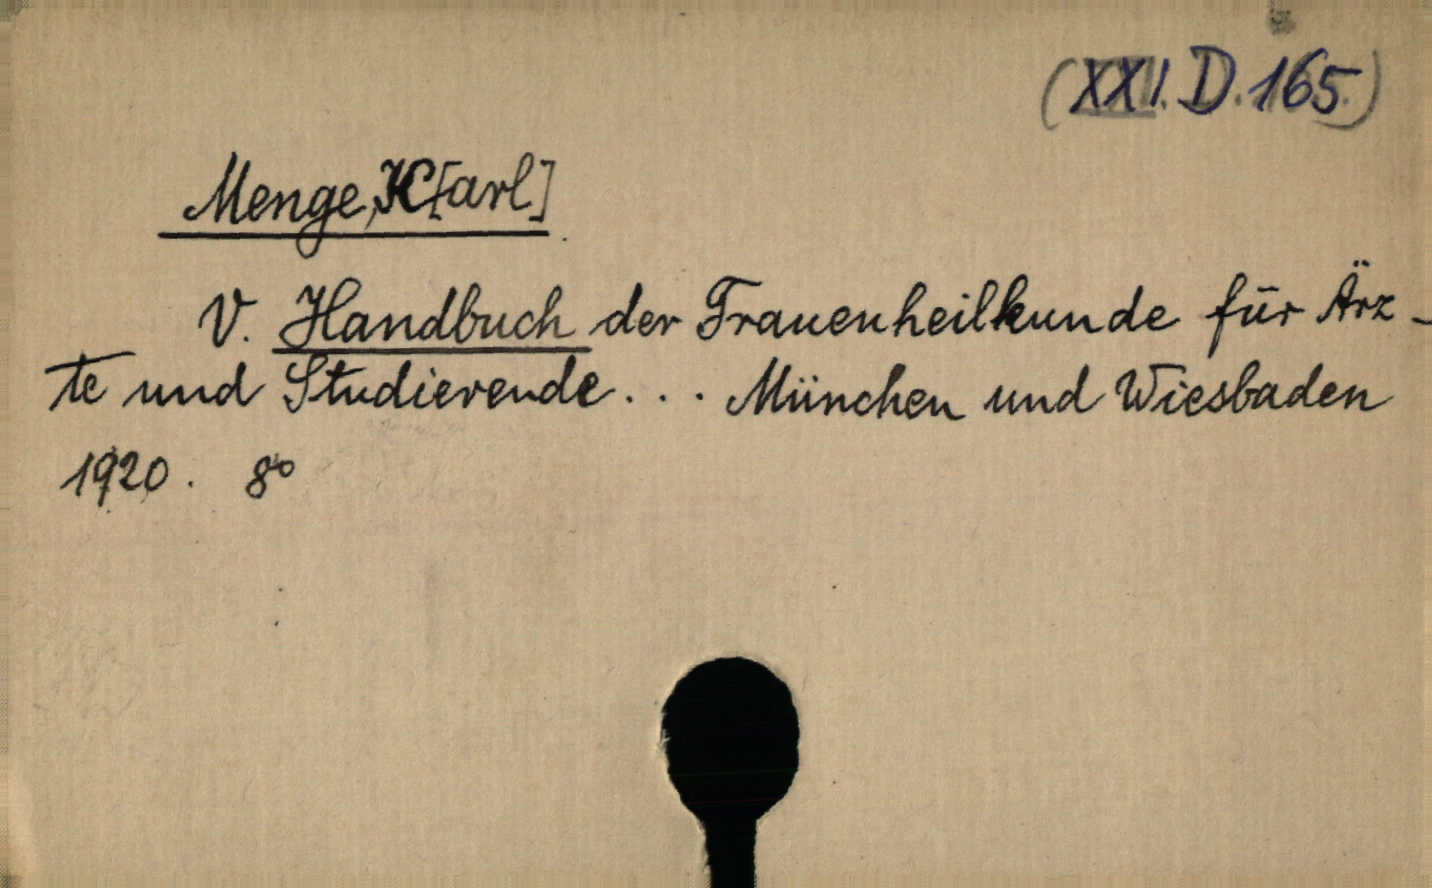 (XXI. D. 165)
Menge, K[arl]
V. Handbuch der Frauenheilkunde für Ärz-
te und Studierende... München und Wiesbaden
1920. 8°